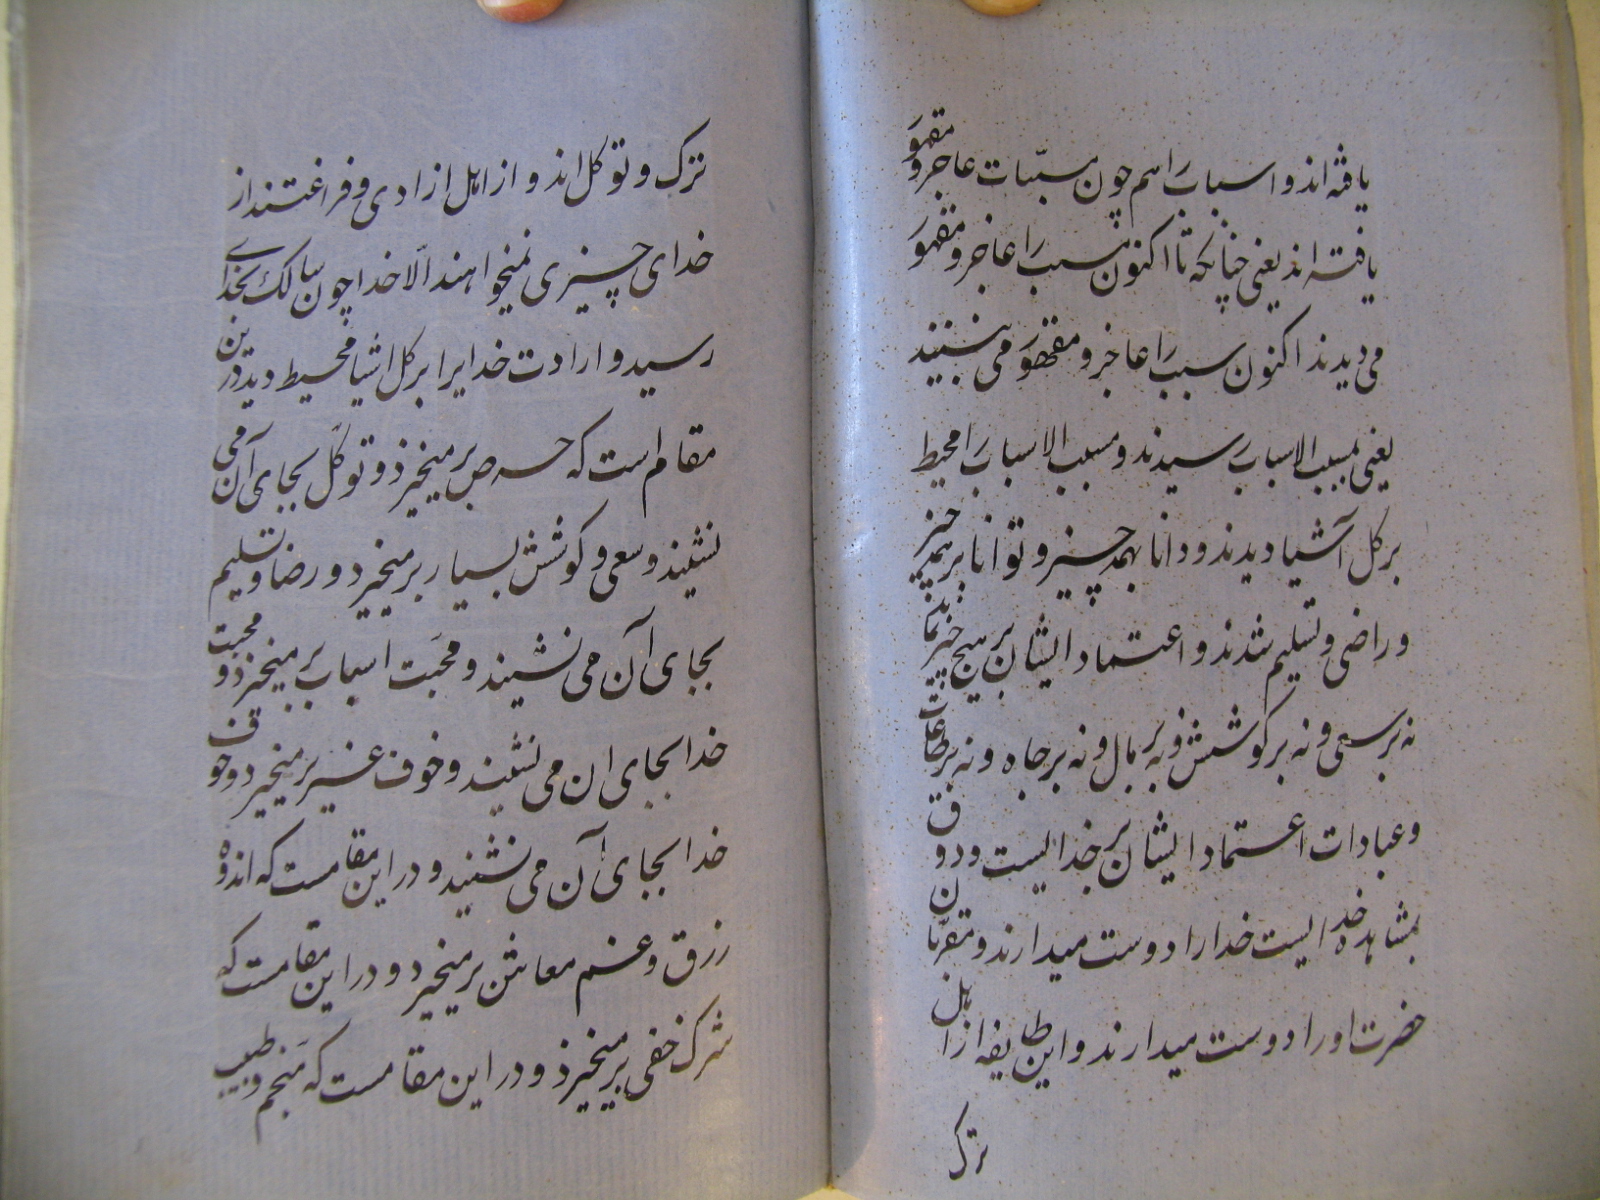 یافته اند و اسباب را هم چون مسببات عاجز و مقهور
یافته اند یعنی چنانکه تا اکنون مسبب را عاجز و مقهور
می دیدند اکنون سبب را عاجز و مقهور می بینند
یعنی بمسبب الاسباب رسیدند و مسبب الاسباب را محیط
بر کل اشیا دیدند و دانا بهمه چیز و توانا بر همه چیز
و راضی و تسلیم شدند و اعتماد ایشان بر هیچ چیز نماند
نه بر سعی و نه بر کوشش و نه بر مال و نه بر جاه و نه بر طاعات
و عبادات اعتماد ایشان بر خدا ایست و ذوق
بمشاهده خدا ایست خدا را دوست میدارند و مقربان
حضرت او را دوست میدارند و این طایفه از اهل
ترک
ترک و توکل اند و از اهل ازادی و فراغتند از
خدای چیزی نمیخواهند الّا خدا چون سالک بخدای
رسید و ارادت خدایرا بر کل اشیا محیط دید درین
مقام است که حرص بر میخیزذ و توکّل بجای آن می
نشیند و سعی و کوشش بسیار بر میخیزد و رضا و تسلیم
بجای آن می نشیند و محبّت اسباب بر میخیزذ و محبت
خدا بجای ان می نشیند و خوف غیر بر میخیزد و خوف
خدا بجای آن می نشیند و در این مقامست که اندوه
رزق و غم معاش بر میخیزد و در این مقامست که
شرک خفی بر میخیزذ و در این مقامست که منجم و طبیب